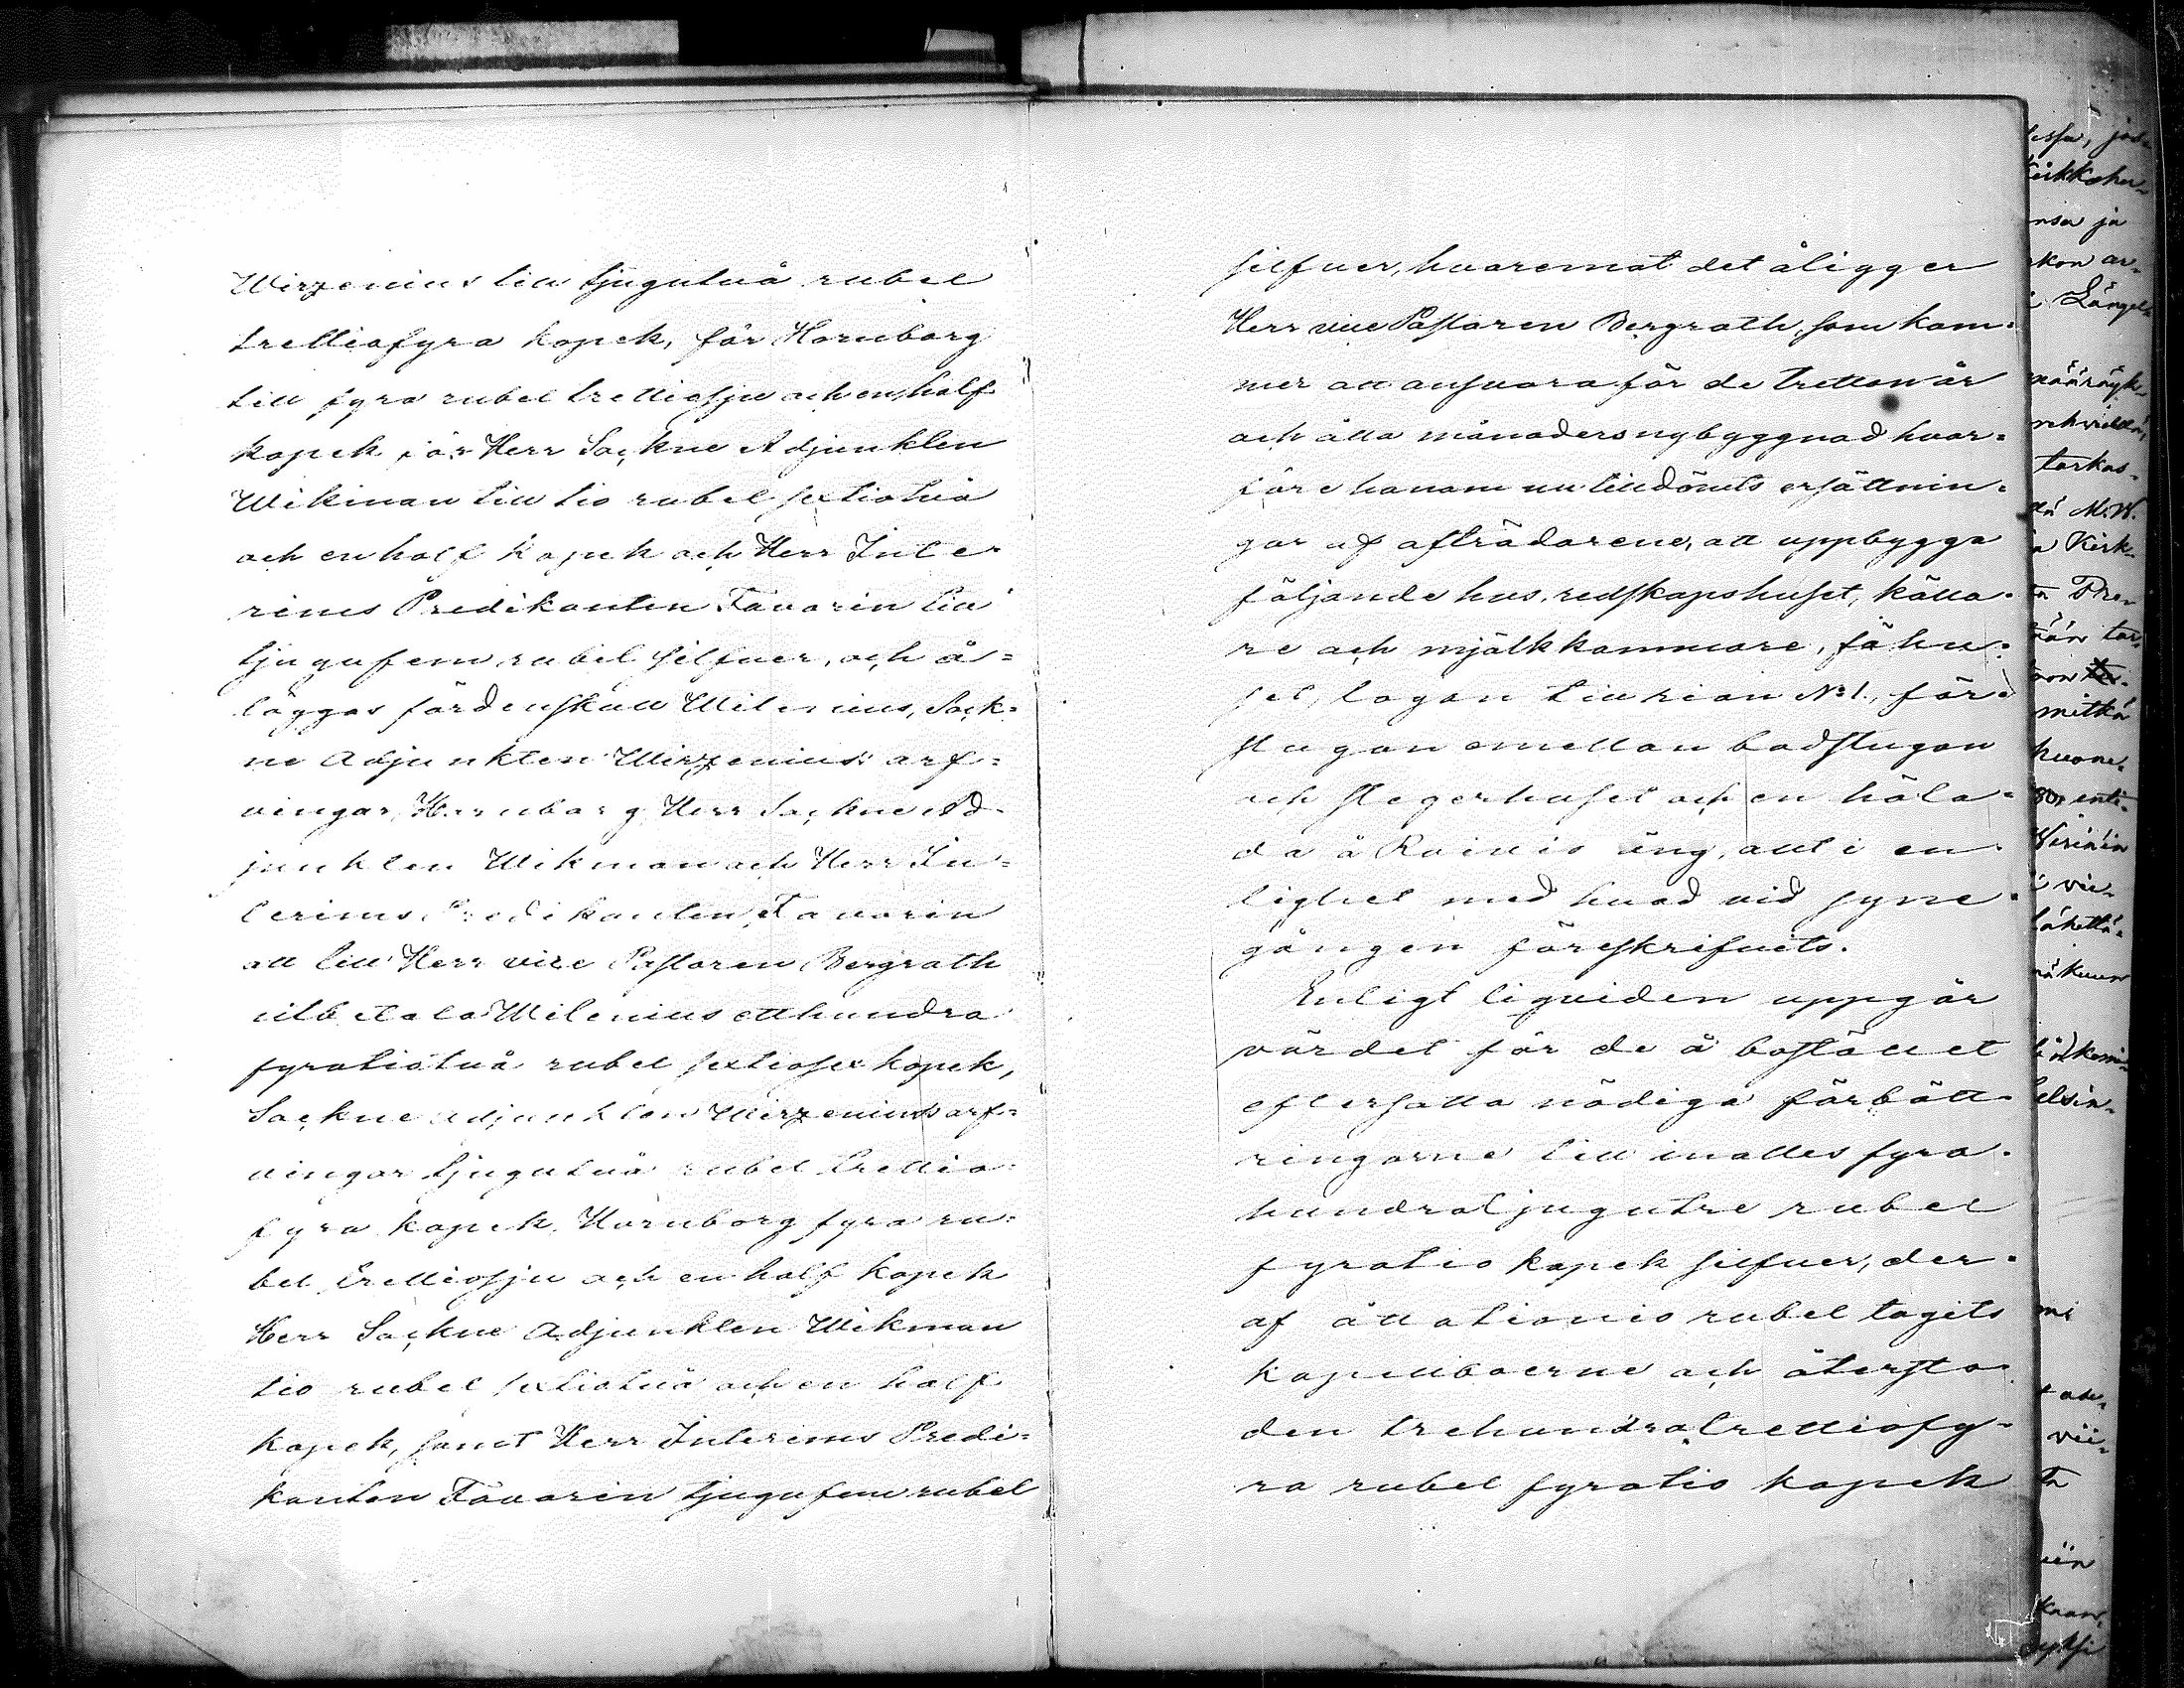 Wirzenius till tjugutvå rubel
trettiofyra kopek, för Hornborg
till fyra rubel trettiosju och en half
kopek för Herr Sockne Adjunkten
Wikman till tio rubel sextiotvå
och en half kopek och Herr Inte-
rims Predikanten Favorin till
tjugufem rubel silfver, och å=
läggas fördenskull Milenius, Sock=
ne Adjunkten Wirzenius arf=
vingar, Hornborg Herr Sockne Ad-
junkten Wikman och Herr In=
terims Predikanten Favorin
att till Herr vice Pastoren Bergroth
utbetala Milenius etthundra
fyratiotvå rubel sextiosex kopek,
Sockne adjunkten Wirzenius arf=
vingar tjugutvå rubel trettio=
fyra kopek, Hornborg fyra ru=
bel trettiosju och en half kopek
Herr Sockne Adjunkten Wikman
tio rubel sextiotvå och en half
kopek, samt Herr Interims Predi=
kanten Favorin tjugufem rubel
silfver, hvaremot det åligger
Herr vice Pastoren Bergroth, som kom=
mer att ansvara för de tretton år
och åtta månaders nybyggnad hvar=
före honom nu tilldömts ersättnin=
gar af afträdarene, att uppbygga
följande hus, redskapshuset, källa=
re och mjölkkammare, fähu=
set, logan till rian No 1., för=
stugan emellan badstugan
och stegerhuset och en höla=
da å Rainio äng, allt i en=
lighet med hvad vid syne=
gången föreskrifvits.
Enligt liqviden uppgår
värdet för de å bostället
eftersatta nödiga förbätt=
ringarne till inalles fyra=
hundratjugutre rubel
fyratio kopek silfver, der=
af åttationio rubel tagits
kapellboerne och återsto=
den trehundratrettiofy=
ra rubel fyratio kopek